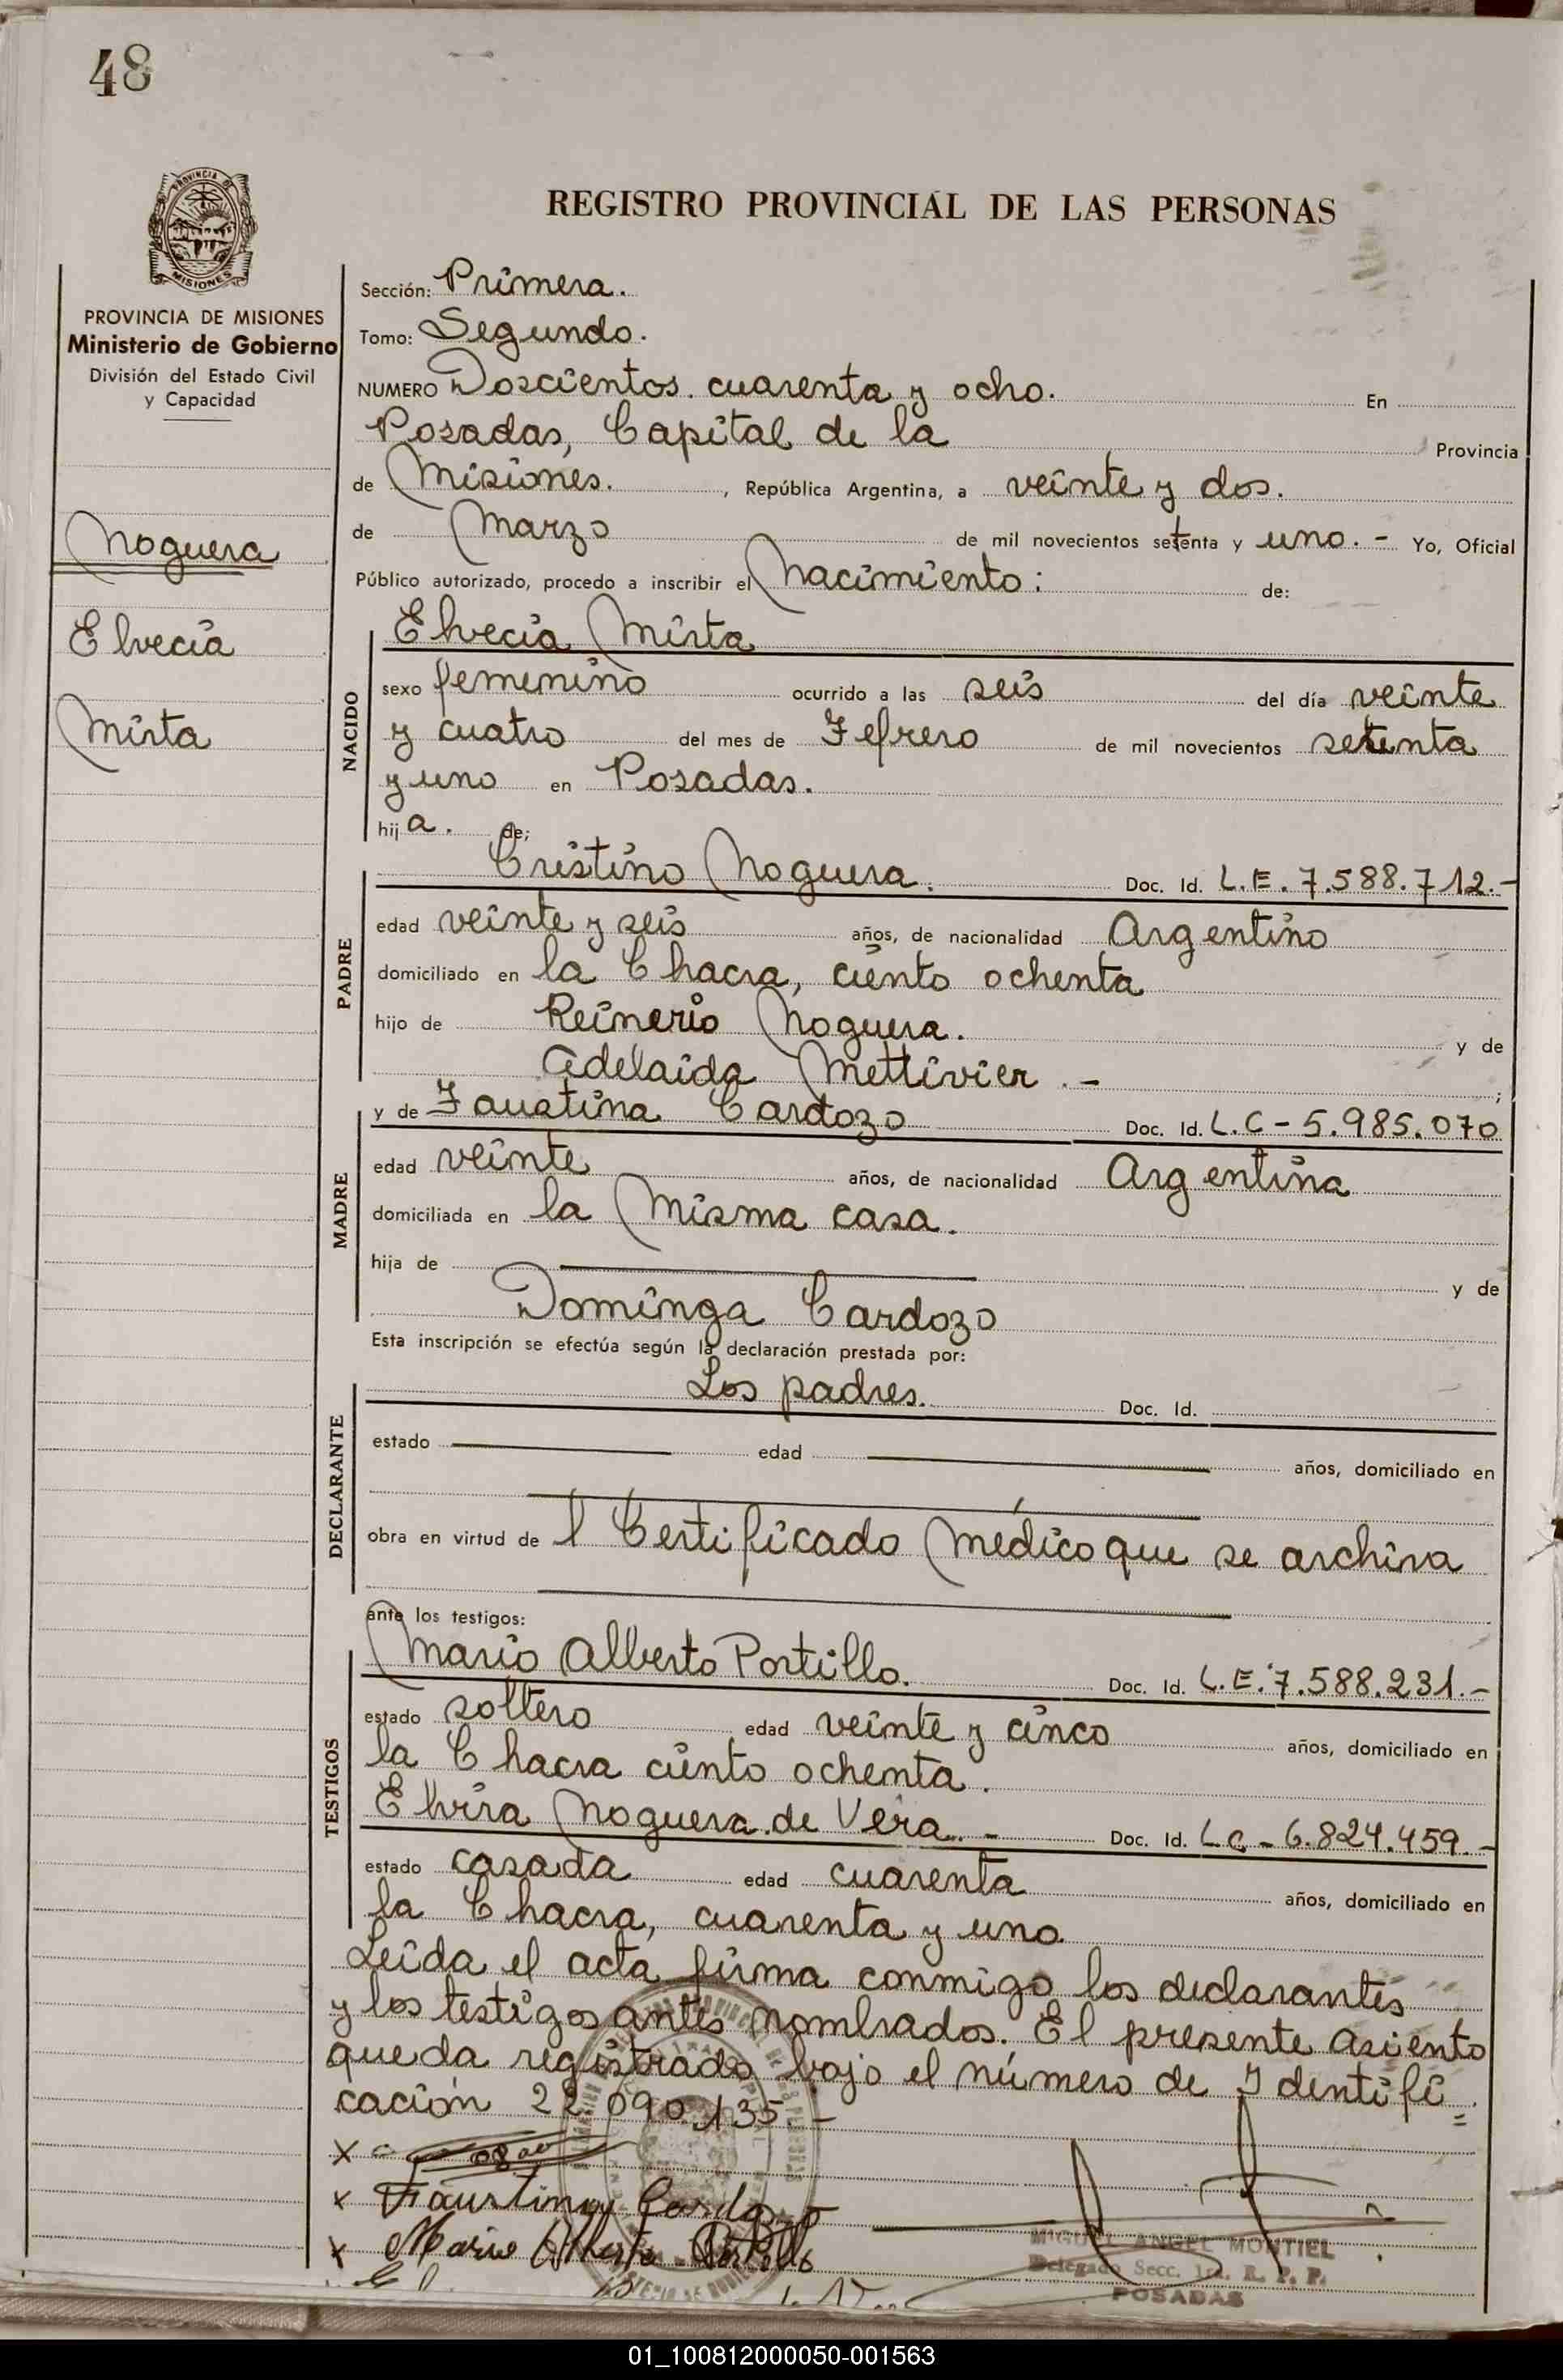 48
PROVINCIA DE
MISIONES
REGISTRO PROVINCIAL DE LAS PERSONAS
PROVINCIA DE MISIONES
Ministerio de Gobierno
División del Estado Civil
y Capacidad
Noguera
Elvecia
Mirta
Sección: Primera.
Tomo: Segundo.
NUMERO Doscientos cuarenta y ocho. En
Posadas, Capital de la Provincia
de Misiones. , República Argentina, a veinte y dos.
de Marzo de mil novecientos setenta y uno. - Yo, Oficial
Público autorizado, procedo a inscribir el Nacimiento: de:
NACIDO
Elvecia Mirta
sexo femenino ocurrido a las seis del día veinte
y cuatro del mes de Febrero de mil novecientos setenta
y uno en Posadas.
hija. de:
PADRE
Cristino Noguera. Doc. Id. L.E. 7.588.712.-
edad veinte y seis años, de nacionalidad Argentino
domiciliado en la Chacra, ciento ochenta
hijo de Reinerio Noguera. y de
Adelaida Mettivier . - ;
MADRE
y de Faustina Cardozo Doc. Id. L.C - 5.985.070
edad veinte años, de nacionalidad Argentina
domiciliada en la Misma casa.
hija de y de
Dominga Cardozo
Esta inscripción se efectúa según la declaración prestada por:
DECLARANTE
Los padres. Doc. Id.
estado edad años, domiciliado en
obra en virtud de l Certificado Médico que se archiva
ante los testigos:
TESTIGOS
Mario Alberto Portillo. Doc. Id. L.E. 7.588.231.-
estado soltero edad veinte y cinco años, domiciliado en
la Chacra ciento ochenta.
Elvira Noguera de Vera. - Doc. Id. L C - 6.824.459.-
estado casada edad cuarenta años, domiciliado en
la Chacra, cuarenta y uno
Leida el acta firma conmigo los declarantes
y los testigos antes nombrados. El presente asiento
queda registrado bajo el número de Identifi
cación 22.090.135. -
x
x Faustina Cardozo
x Mario Alberto Portillo
MIGUEL ANGEL MONTIEL
Delegado Secc. 1ra. R. P. P.
POSADAS
01_100812000050-001563